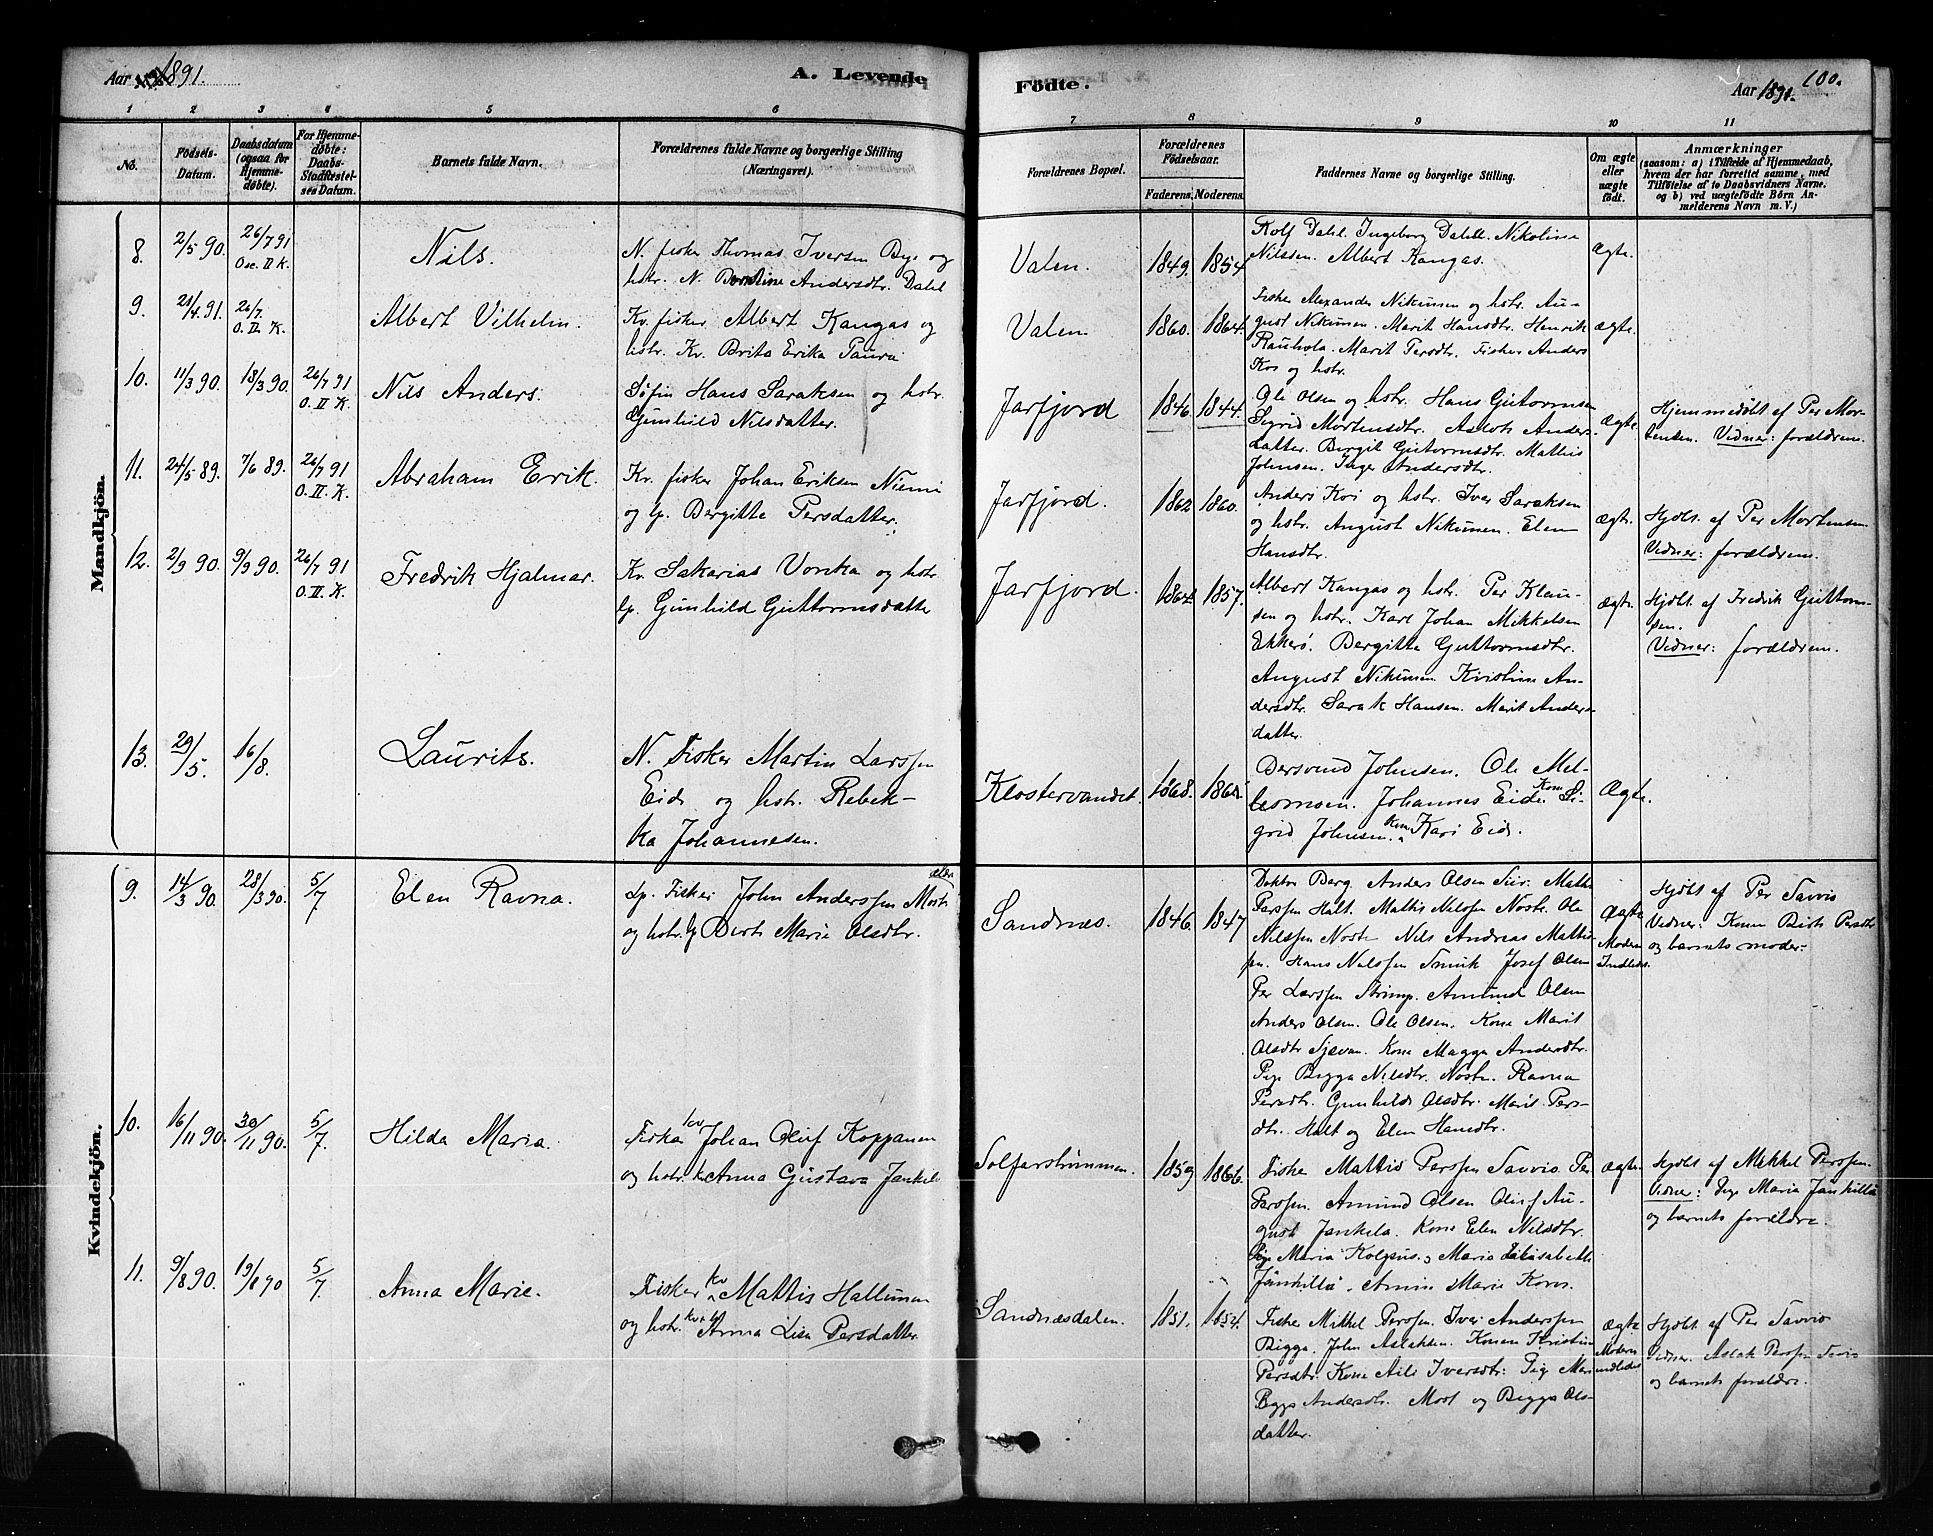 Aar 1891.
A. Levende
Fødte.
Aar 1891.
100.
1 2 3 4 5 6 7 8 9 10 11
No.
Fødsels-Datum.
Daabsdatum (ogsaa for Hjemme-døbte).
For Hjemme-døbte: Daabs-Stadfæstel-ses Datum.
Barnets fulde Navn.
Forældrenes fulde Navne og borgerlige Stilling (Næringsvei).
Forældrenes Bopæl.
Forældrenes Fødselsaar.
Faderens. Moderens.
Faddernes Navne og borgerlige Stilling.
Om ægte eller uægte født.
Anmærkninger
(saasom: a) i Tilfælde af Hjemmedaab, hvem der har forrettet samme, med Tilføielse af to Daabsvidners Navne, og b) ved uægtefødte Børn Anmelderens Navn m. V.)
Mandkjön.
8. 2/5 90. 26/7 91 Osc. II K.
Nils.
N. fisker Thomas Iversen Bye og
hstr. N. Andersdtr. Dahl
Valen. 1849. 1854.
Rolf Dahl. Ingeborg Dahl. Nikoline
Nilssen. Albert Kangas.
Ægte.
9. 21/4 91. 26/7. O. II. K.
Albert Vilhelm.
Kv. fisker Albert Kangas og
hstr. Kv. Brita Erika Paura
Valen. 1860. 1864.
Fisker Alexander Nikunen og hstr. Au-
gust Nikunen. Marit Hansdtr. Henrik
Rauhola. Marit Persdtr. Fisker Anders
Koi og hstr.
ægte.
10. 11/3 90. 18/3 90. 26/7 91 O. II K.
Nils Anders.
Søfin Hans Saraksen og hstr.
Gunhild Nilsdatter.
Jarfjord 1846. 1844.
Ole Olsen og hstr. Hans Guttormsen
Sigrid Mortensdtr. Aslak Anders-
datter. Bergit Guttormsdtr. Mathis
Johnsen. Inger Andersdtr.
ægte.
Hjemmedøbt af Per Mor-
tensen. Vidner: forældrene.
11. 24/5 89. 7/6 89. 26/7 91 O. II. K.
Abraham Erik.
Kv. fisker Johan Eriksen Niemi
og lp. Bergitte Persdatter.
Jarfjord. 1862 1860.
Anders Koi og hstr. Iver Saraksen
og hstr. August Nikunen. Elen
Hansdtr.
ægte.
Hjdbt. af Per Mortensen.
Vidner: forældrene.
12. 2/9 90. 9/9 90. 26/7 91 O. II. K.
Fredrik Hjalmar.
Kv. Sakarias Vonka og hstr.
lp. Gunhild Guttormsdatter
Jarfjord. 1864 1857.
Albert Kangas og hstr. Per Klau-
sen og hstr. Karl Johan Mikkelsen
Ekkerø. Bergitte Guttormsdtr.
August Nikunen. Kristine An-
dersdtr. Sarak Hansen. Marit Anders-
datter.
ægte.
Hjdbt. af Fredrik Guttorm-
sen.
Vidner: forældrene.
13. 29/5. 16/8.
Laurits.
N. Fisker Martin Larssen
Eide og hstr. Rebek-
ka Johannesen.
Klostervandet. 1868.
Bersvend Johnsen. Ole
Johannes Eide. Kone Si-
grid Johnsen. Kone Kari Eide.
Ægte.
Kvindekjön.
9. 14/3 90. 28/3 90. 5/7
Elen Ravna.
Lp. Fisker John Anderssen
og hstr. lp Berit Marie Olsdtr.
Sandnæs. 1846. 1847
Doktor Berg. Anders Olsen Mathis
Perssen Halt. Mattis Nilssen Noste. Ole
Nilssen Noste Nils Andreas Mattis-
sen. Hans Nilssen Smuk Josef Olsen
Per Larssen Strimp. Amund Olsen
Anders Olsen. Ole Olsen. Kone Marit
Olsdtr Kone Magga Andersdtr.
Pige Bigga Nilsdtr. Noste. Ravna
Persdtr. Gunhilds Olsdtr. Marit Pers-
dtr. Halt og Elen Hansdtr.
Ægte
Hjdbt af Per Savvio
Vidner: Konen Berit Persdtr
og barnets moder.
10. 16/11 90. 30/11 90. 5/7.
Hilda Maria.
Fisker kv Johan Oluf Koppanen
og hstr. kv Anna Gustava Jankila
Solfarstrømmen. 1859 1866.
Fisker Mattis Perssen Savvio. Per
Perssen. Amund Olsen Oluf Au-
gust Jankila. Kone Elen Nilsdtr.
Pige Maria
Marie
ægte
Hjdbt af Mikkel Perssen.
Vidner: Pige Maria Jankilla
og barnets forældre.
11. 9/8 90. 19/8 90 5/7
Anna Marie.
Fisker kv Mattis Hallunen
og hstr. Anna Lisa Persdatter.
Sandnæsdalen. 1851. 1854.
Fisker Mikkel Perssen. Iver Anderssen
Bigga. John Aslaksen. Konen Kristine
Persdtr. Kone Aile Iversdtr. Pige
Bigga Andersdtr. og Bigga Ols-
datter.
ægte
Hjdbt. af Per Savvio
Vidner. Aslak Perssen Savio
og barnets forældre.